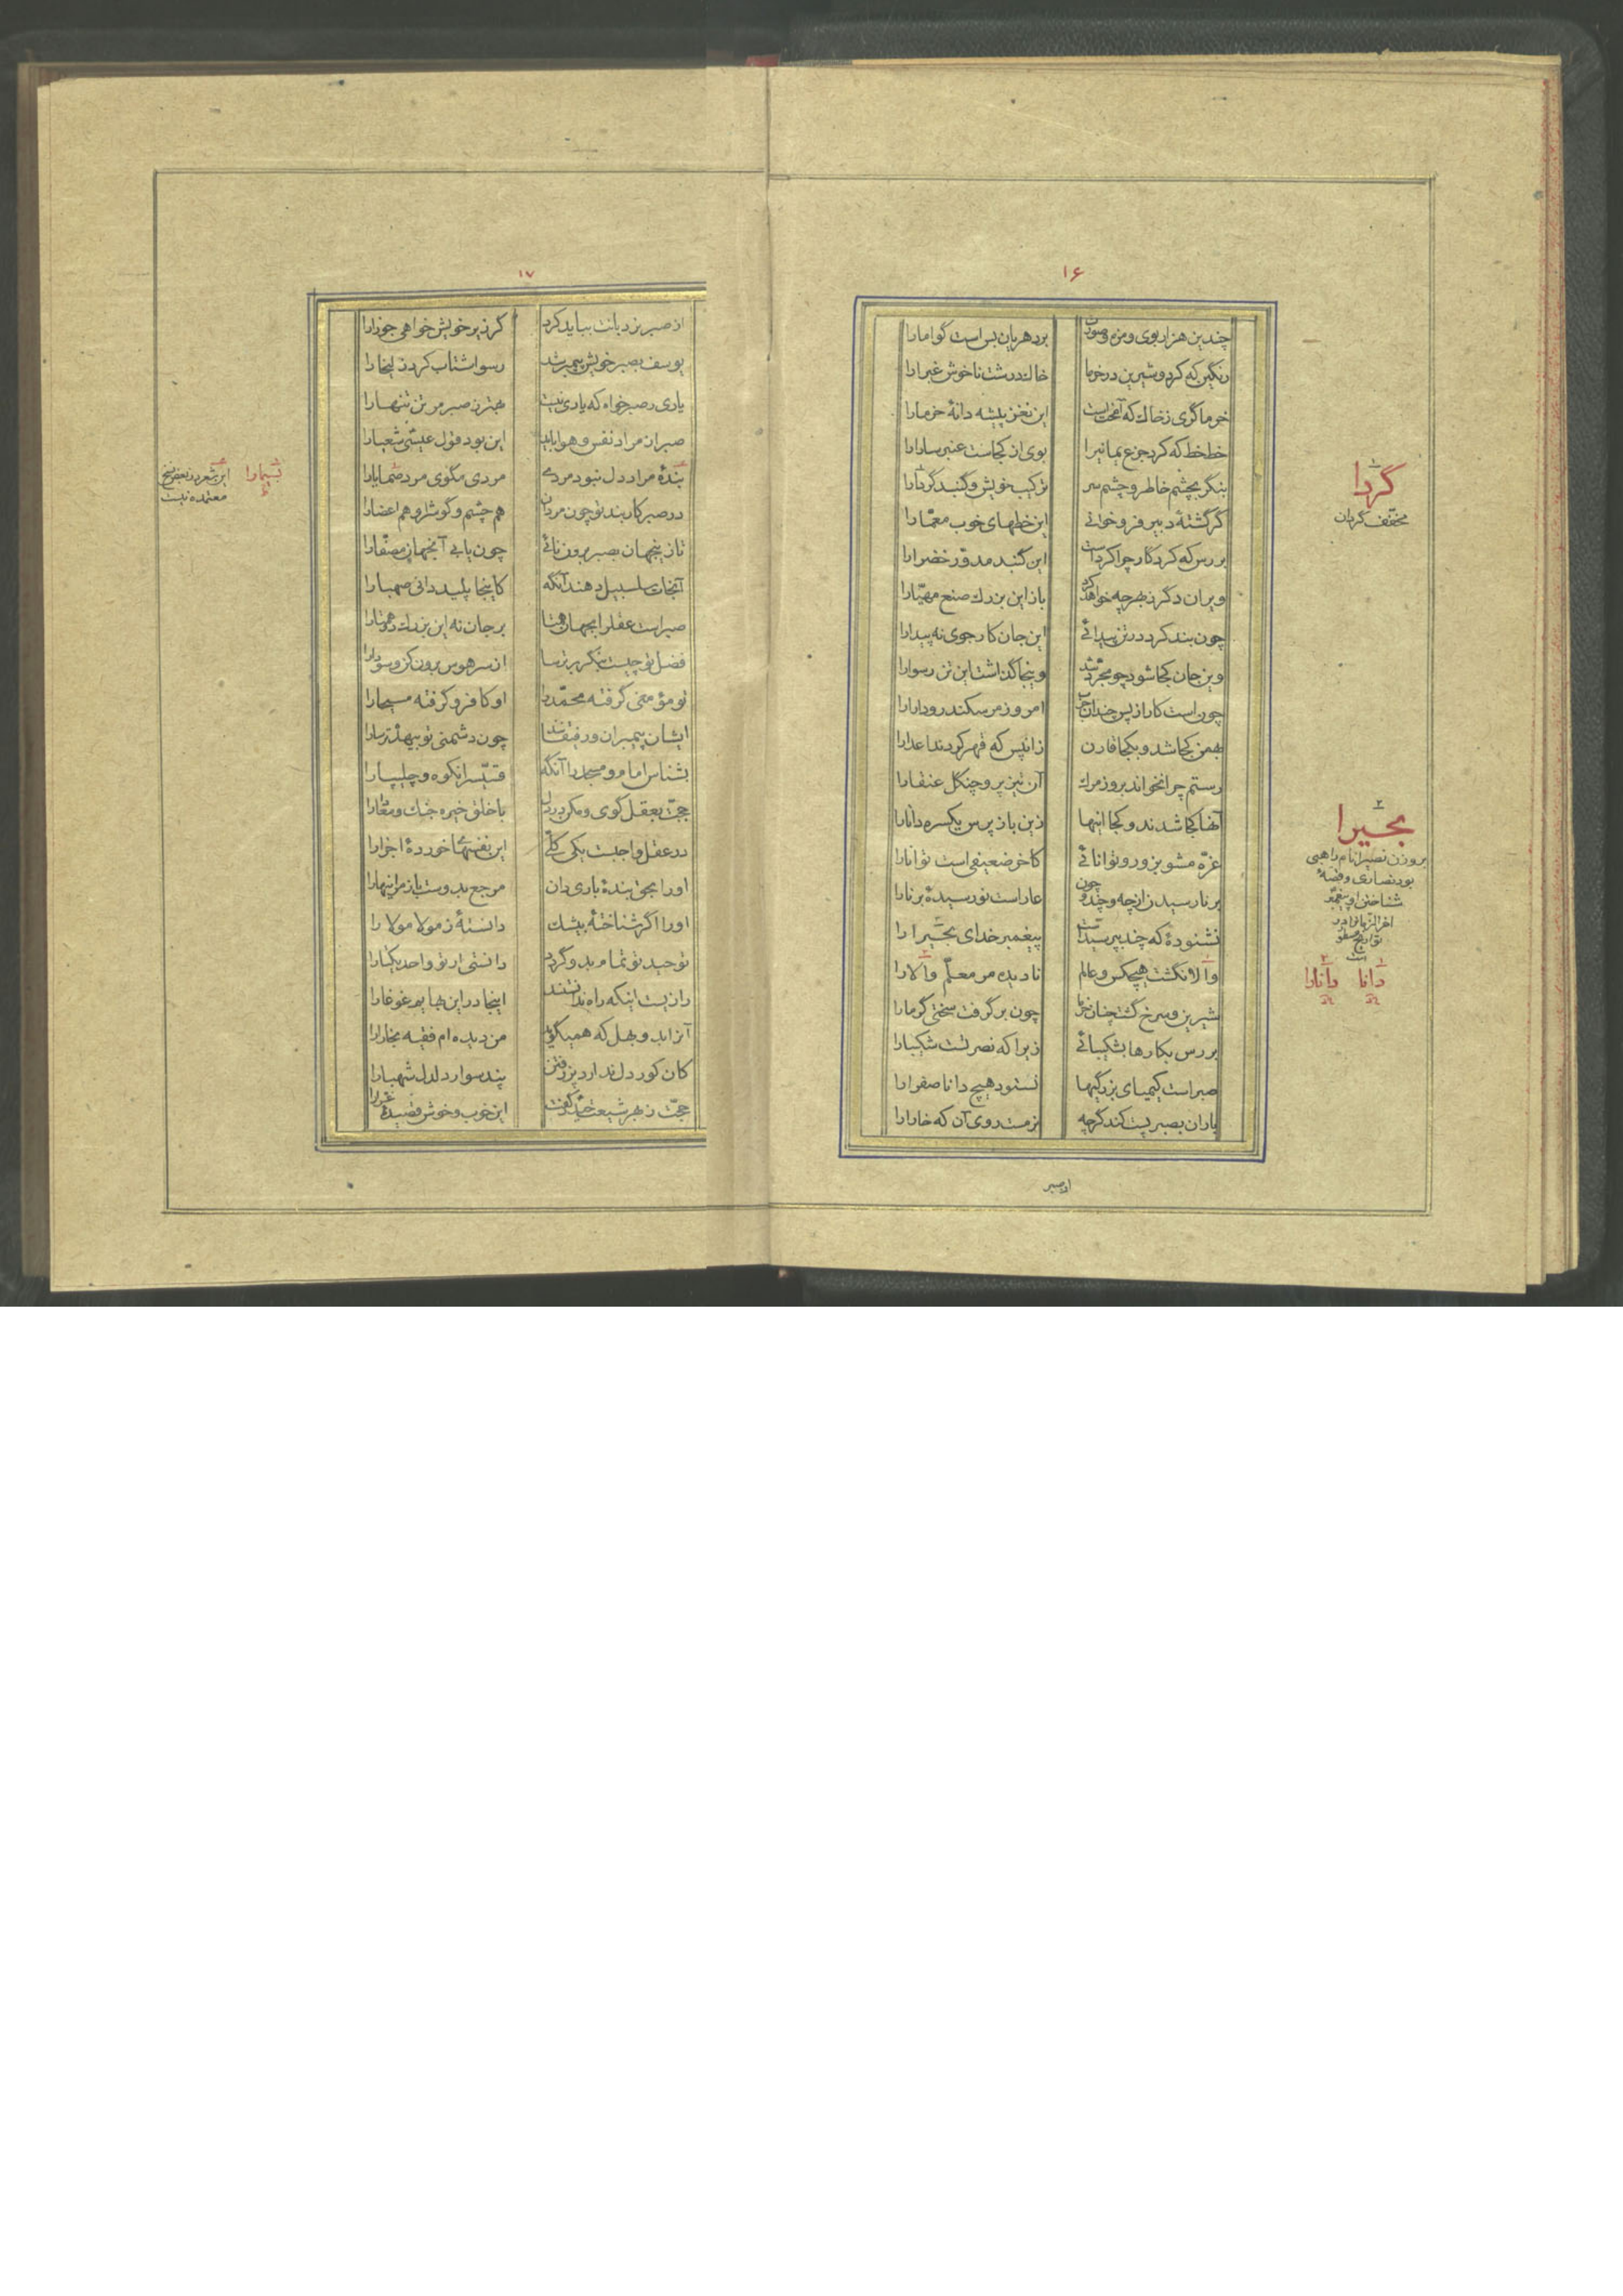 ۱۶
چندین هزار بوی و مزه و صورت
بر دهریان بس است گوا ما را
رنگین که کرد و شیرین در خرما
خاک درشت ناخوش غبرا را
خرماگری ز خاک که آمختست
این نغز پیشه دانهٔ خرما را
خط خط که کرد جزع یمانی را
بوی از کجاست عنبر سارا را
بنگر بچشم خاطر و چشم سر
ترکیب خویش و گنبد گردا را
گر گشتهٔ دبیر فرو خوانی
این خطهای خوب معمّا را
بررس که کردگار چرا کرداست
این گنبد مدوّر خضرا را
ویران دگر ز بهر چه خواهد کرد
باز این بزرک صنع مهیّا را
چون بند کرد در تن پیدائی
این جان کارجوی نه پیدا را
وین جان کجا شود چو مجرّد شد
وینجا گذاشت این تن رسوا را
چون است کار از پس چندان حرب
امروز مر سکندر و دارا را
بهمن کجا شد و بکجا قارن
زانپس که قهر کردند اعدا را
رستم چرا نخواند بروز مرک
آن تیزپر و چنکل عنقا را
آنها کجا شدند و کجا اینها
زین باز پرس یکسره دانا را
غرّه مشو بزور و توانائی
کاخر ضعیفی است توانا را
برنا رسیدن از چه و چند و چون
عار است نورسیدهٔ برنا را
نشنودهٔ که چند بپرسیداست
پیغمبر خدای بحیرا را
والا نگشت هیچکس و عالم
نادیده مر معلّم والا را
شیرین و سرخ گشت چنان خرما
چون برگرفت سختی گرما را
بررس بکارها بشکیبائی
زیرا که نصرتست شکیبا را
صبر است کیمیای بزرگیها
نستود هیچ دانا صفرا را
باران بصبر پست کند گرچه
نرمست روی آن که خارا را
از صبر
گردا
مخفّف گردان
۲
بحیرا
بروزن نصیرا نام راهبی
بود نصاری و قصّهٔ
شناختن او پیغمبر
آخر الزمانرا در
تواریخ مسطور
است
دانا
دانا را
۱۷
از صبر نردبانت بباید کرد
گر زیر خویش خواهی جوزا را
یوسف بصبر خویش پیمبر شد
رسوا شتاب کرد زلیخا را
یاری ز صبر خواه که یاری نیست
بهتر ز صبر مر تن تنها را
صبر از مراد نفس و هوا باید
این بود قول عیسی شعیا را
بندهٔ مراد دل نبود مردی
مردی مگوی مرد صمایا را
در صبر کار بند تو چون مردان
هم چشم و گوش را و هم اعضا را
تا زینجهان بصبر برون نائی
چون یابی آنجهان مصفّا را
آنجات سلسبیل دهند آنگه
کاینجا پلید دانی صهبا را
صبر است عقل را بجهان همتا
بر جان نه این بزرک دو همتا را
فضل تو چیست بنگر بر ترسا
از سر هوس برون کن و سودا را
تو مؤمنی گرفته محمّد را
او کافر و گرفته مسیحا را
ایشان پیمبران و رفیقانند
چون دشمنی تو بیهده ترسا را
بشناس امام و مسجد را آنگه
قسّیس را نکوه و چلیپا را
حجّت بعقل گوی و مکن در دل
با خلق خیره جنک و معادا را
در عقل واجبست یکی کلّی
این نفسهای خوردهٔ اجزا را
او را بحق بندهٔ باری دان
مرجع بدوست باز مراینها را
او را اگر شناختهٔ بیشک
دانستهٔ ز مولا مولا را
توحید تو تمام بدو گردد
دانستی ار تو واحد یکتا را
رازیست اینکه راه ندانستند
اینجا در این بهایم غوغا را
آنرا بدو بهل که همیگوید
من دیده‌ام فقیه بخارا را
کان کوردل ندارد پزرفتن
پند سوار دلدل شهبا را
حجّت ز بهر شیعت حیدر گفت
این خوب و خوش قصیدهٔ غرّا را
این شعر در بعض نسخ
معتمده نیست